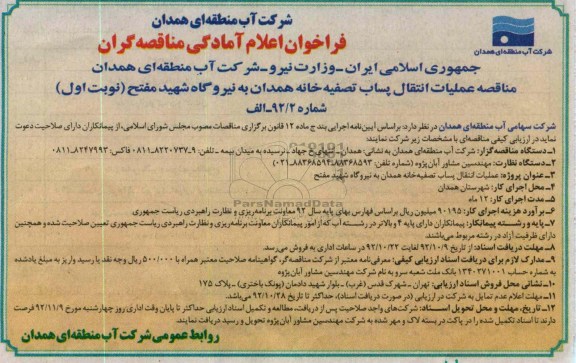 شرکت آب منطقه‌ای همدان
فراخوان اعلام آمادگی مناقصه‌گران
شرکت آب منطقه‌ای همدان
جمهوری اسلامی ایران ـ وزارت نیرو ـ شرکت آب منطقه‌ای همدان
مناقصه عملیات انتقال پساب تصفیه خانه همدان به نیروگاه شهید مفتح (نوبت اول)
شماره ۹۲/۲-الف
شرکت سهامی آب منطقه‌ای همدان در نظر دارد: براساس آیین‌نامه اجرایی بند ج ماده ۱۲ قانون برگزاری مناقصات مصوب مجلس شورای اسلامی، از پیمانکاران دارای صلاحیت دعوت
نماید در ارزیابی کیفی مناقصه‌ای با مشخصات زیر شرکت نمایند:
۱ـ دستگاه مناقصه‌گزار: شرکت آب منطقه‌ای همدان به نشانی: همدان ـ انتهای خ جهاد ـ نرسیده به میدان بیمه ـ تلفن: ۹-۸۲۲۰۷۳۷-۰۸۱۱ فاکس: ۸۲۴۷۹۹۳-۰۸۱۱
۲ـ دستگاه نظارت: مهندسین مشاور آبان‌پژوه (شماره تلفن: ۸۸۳۶۸۵۹۳-۸۸۳۶۸۵۹۴-۰۲۱)
۳ـ عنوان پروژه: عملیات انتقال پساب تصفیه‌خانه همدان به نیروگاه شهید مفتح
۴ـ محل اجرای کار: شهرستان همدان
۵ـ مدت اجرای کار: ۱۲ ماه
۶ـ برآورد هزینه اجرای کار: ۹۰۱۹۵ میلیون ریال براساس فهارس بهای پایه سال ۹۲ معاونت برنامه‌ریزی و نظارت راهبردی ریاست جمهوری
۷ـ پایه و رشته پیمانکار: پیمانکاران دارای پایه ۴ و بالاتر در رشته آب که از امور پیمانکاران معاونت برنامه‌ریزی و نظارت راهبردی ریاست جمهوری تعیین صلاحیت شده و همچنین
دارای ظرفیت آزاد در رشته مربوط می‌باشند.
۸ـ مهلت دریافت اسناد: از تاریخ ۹۲/۱۰/۹ لغایت ۹۲/۱۰/۲۲ در ساعات اداری به فروش می‌رسد.
۹ـ مدارک لازم برای دریافت اسناد ارزیابی کیفی: معرفی‌نامه معتبر از شرکت مناقصه‌گر، گواهینامه صلاحیت معتبر همراه با ۵۰۰/۰۰۰ ریال وجه نقد یا رسید واریز به مبلغ یادشده
به شماره حساب ۱۳۴۰۲۷۱۰۰۱ بانک ملت شعبه سرو به نام شرکت مهندسین مشاور آبان‌پژوه
۱۰ـ نشانی محل فروش اسناد ارزیابی: تهران ـ شهرک قدس (غرب) ـ بلوار شهید دادمان (پونک باختری) ـ پلاک ۱۷۵
۱۱ـ مهلت اعلام عدم تمایل به شرکت در ارزیابی (در صورت دریافت اسناد)، حداکثر تا تاریخ ۹۲/۱۰/۲۸ می‌باشد.
۱۲ـ تاریخ، مهلت و محل تحویل اسناد: شرکت‌های واجد صلاحیت پس از دریافت، مطالعه و تکمیل اسناد ارزیابی حداکثر تا پایان وقت اداری روز چهارشنبه مورخ ۹۲/۱۱/۹ فرصت
دارند تا اسناد تکمیل شده را در پاکت در بسته لاک و مهر شده به شرکت مهندسین مشاور آبان‌پژوه تحویل و رسید دریافت نمایند.
روابط عمومی شرکت آب منطقه‌ای همدان